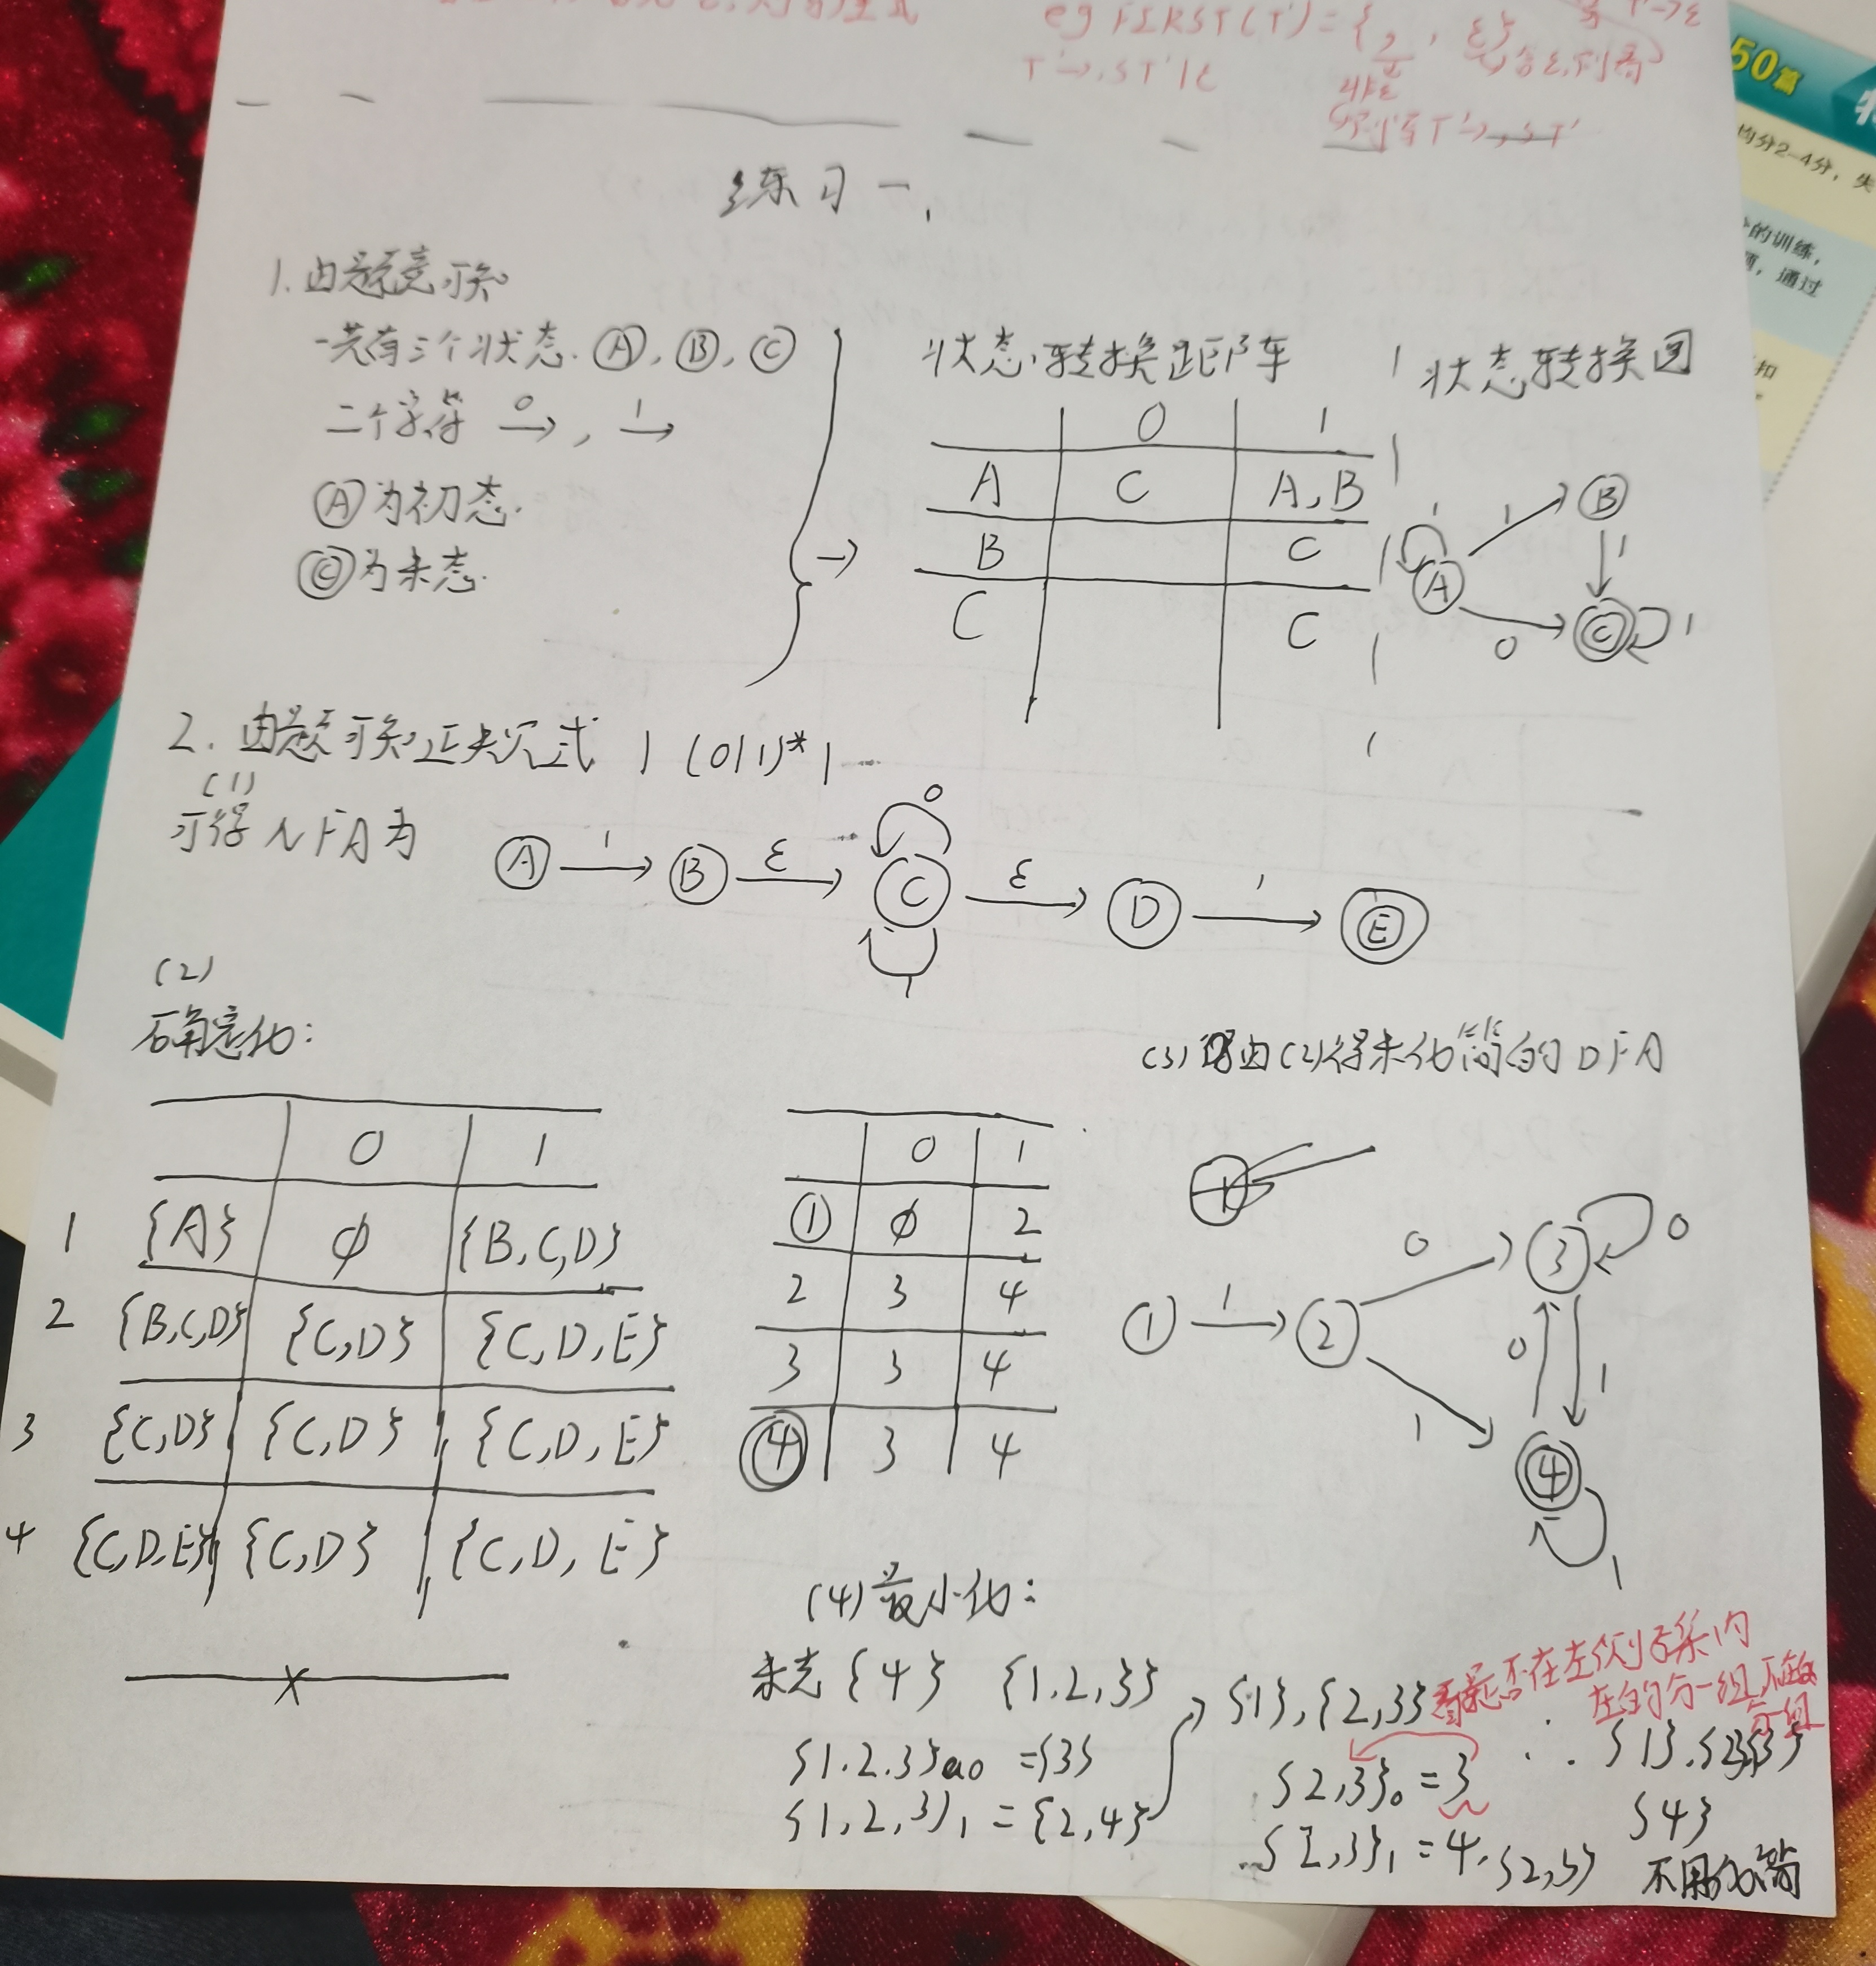 eg FIRST(T')={ , , ε}
T'→,ST'|ε
非ε
T'→,ST'
50篇
均分2-4分,失
的训练,
通过
扣
练习一、
1.由题意可知
一共有三个状态.Ⓐ,Ⓑ,Ⓒ
二个字符 0→, 1→
Ⓐ为初态.
Ⓒ为末态.
状态转换矩阵
0 1
A C A,B
B C
C C
状态转换图
1 1 B
A 1
0 C 1
2.由题可知正规式 1(0|1)*1
(1)
可得NFA为
0
A 1 B ε C ε D 1 E
1
(2)
确定化:
0 1
1 {A} φ {B,C,D}
2 {B,C,D} {C,D} {C,D,E}
3 {C,D} {C,D} {C,D,E}
4 {C,D,E} {C,D} {C,D,E}
0 1
① φ 2
2 3 4
3 3 4
④ 3 4
(3)由(2)得未化简的DFA
1
0 3 0
1 1 2
0 1
1 4
1
(4)最小化:
未态{4} {1,2,3} {1},{2,3} 看是否在左侧子集内
在的分一组,不在
分组
{1.2.3}0 ={3}
{1,2,3}1 ={2,4}
{2,3}0 =3
{2,3}1 =4.{2,3}
∴{1}.{2,3}
{4}
不用化简